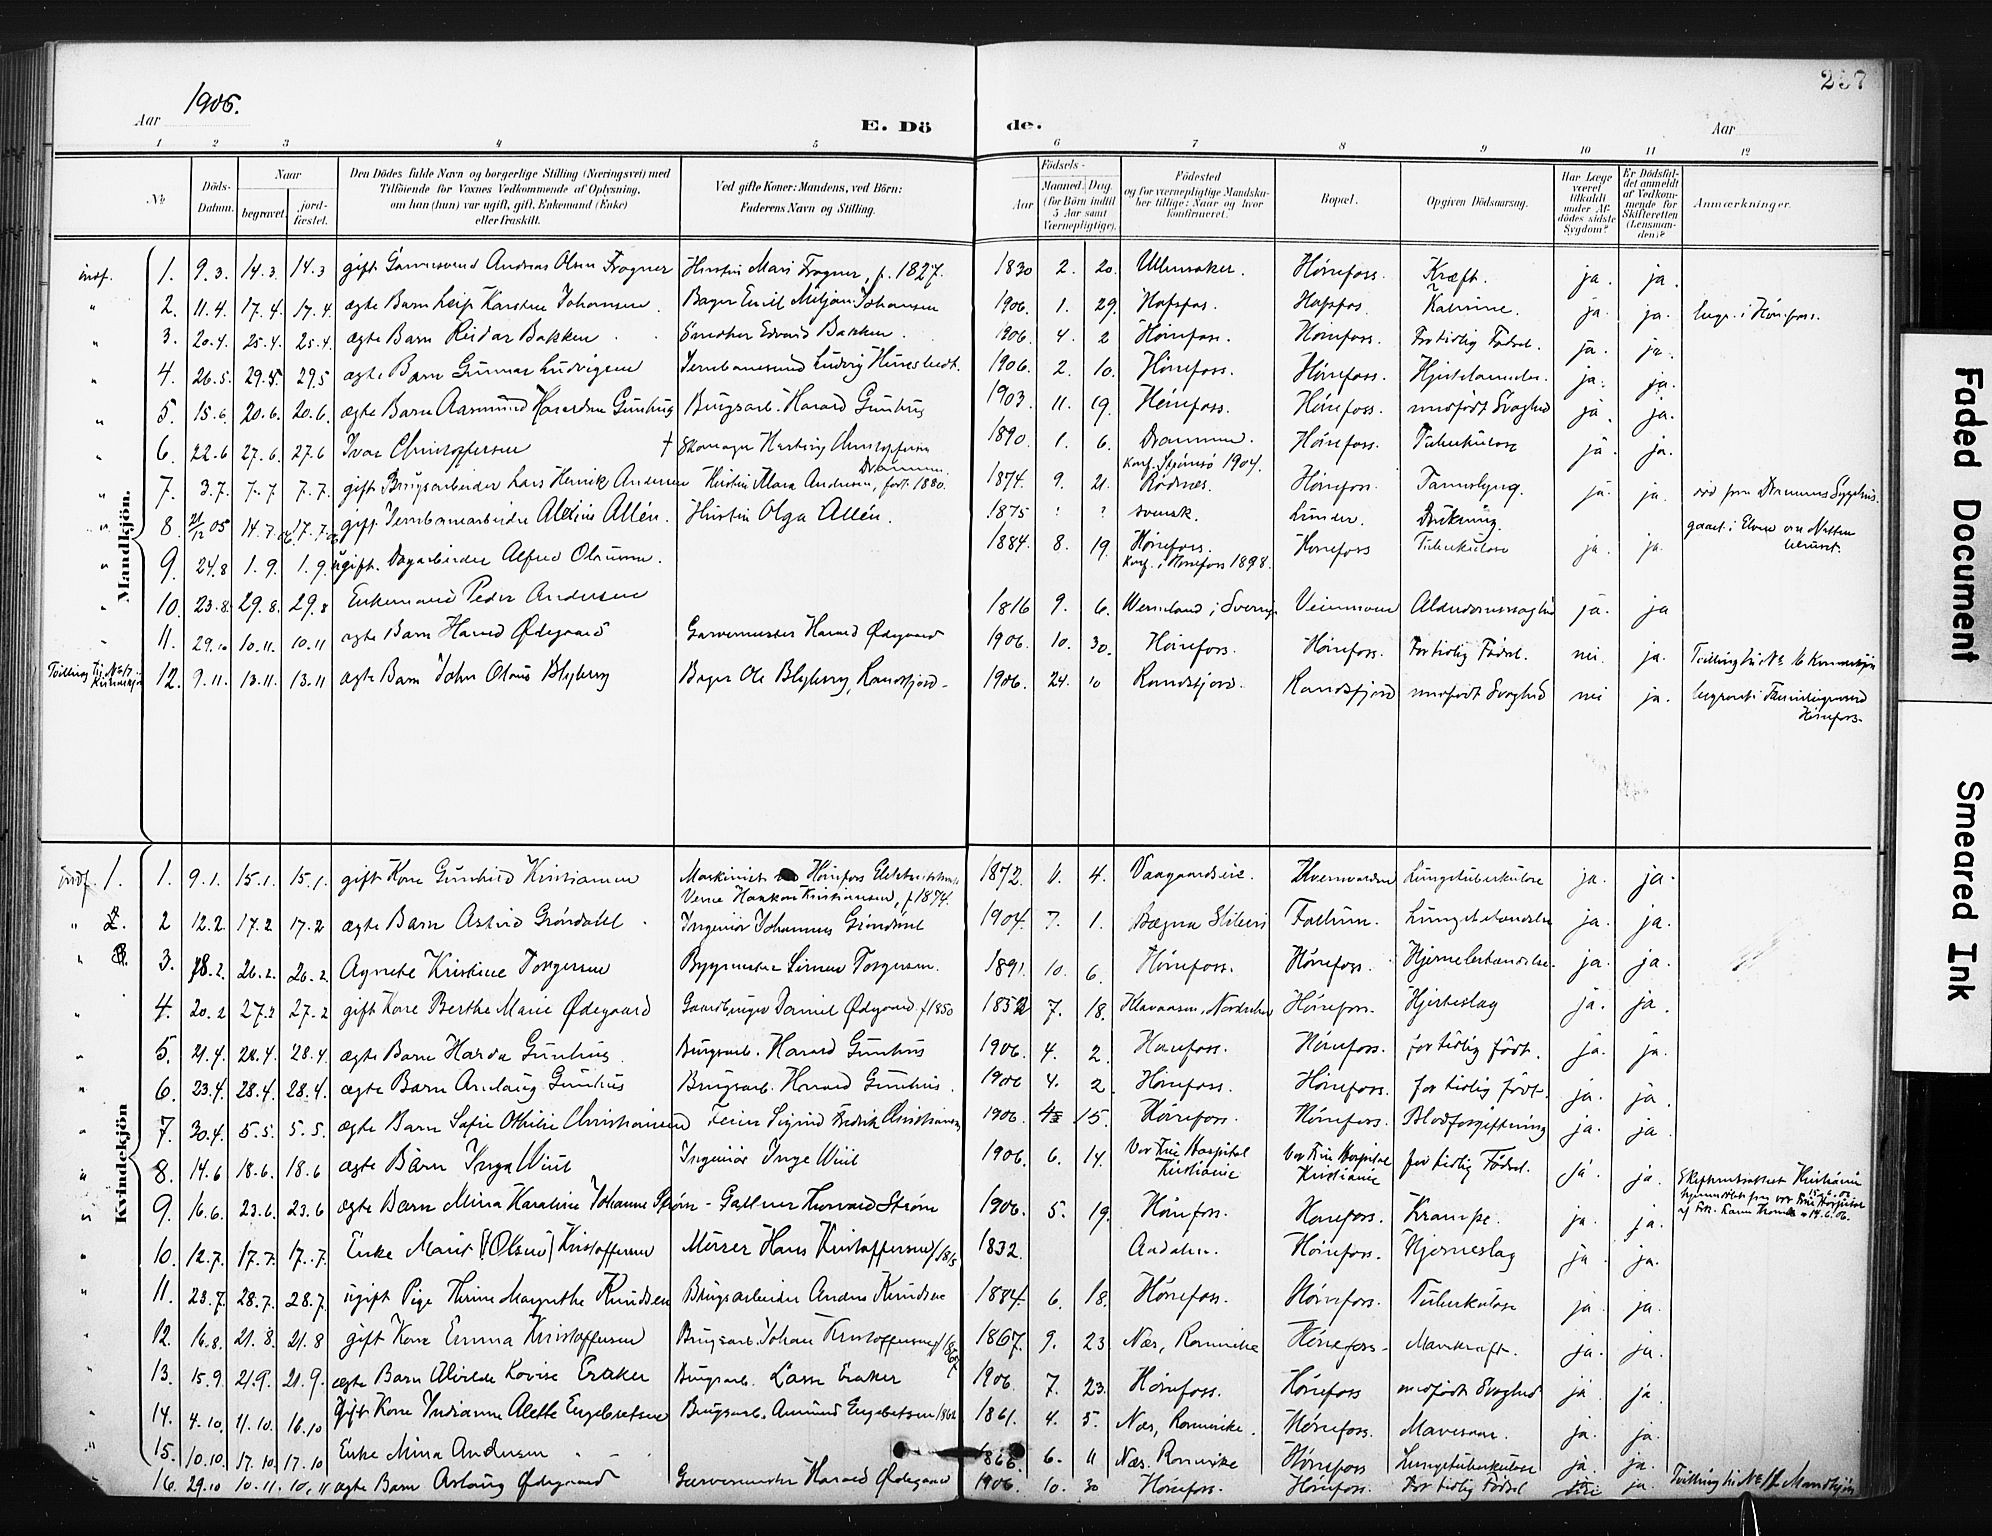 257
Aar 1906.
E. Dö
de.
Aar
1 2 3 4 5 6 7 8 9 10 11 12
№
Döds-Datum.
Naar
begravet.
jord-fæstet.
Den Dödes fulde Navn og borgerlige Stilling (Næringsvei) med Tilföiende for Voxnes Vedkommende af Oplysning, om han (hun) var ugift, gift, Enkemand (Enke) eller fraskilt.
Ved gifte Koner: Mandens, ved Börn: Faderens Navn og Stilling.
Födsels-
Aar
Maaned. Dag.
(for Börn indtil 5 Aar samt Værnepligtige).
Födested og for værnepligtige Mandska-ber tillige: Naar og hvor konfirmeret.
Bopæl.
Opgiven Dödsaarsag.
Har Læge været tilkaldt under Af-dödes sidste Sygdom?
Er Dödsfal-det anmeldt af Vedkom-mende for Skifteretten (Lensman-den)?
Anmærkninger.
Mandkjön.
indf. 1. 9.3. 14.3. 14.3 gift Andreas Olsen Frogner Hustru Mari Frogner, f. 1827. 1830 2. 20. Ullensaker. Hönefoss. Kræft. ja. ja.
" 2. 11.4. 17.4. 17.4. ægte Barn Leif Karsten Johansen Bager Emil Johansen 1906. 1. 29. Hofsfos. Hofsfos. ja. ja. begr. i Hönefoss.
" 3. 20.4. 25.4. 25.4. ægte Barn Reidar Bakken Snedker Edvard Bakken 1906. 4. 2 Hönefoss. Hönefoss. For tidlig Födsel. ja. ja.
" 4. 26.5. 29.5. 29.5 ægte Barn Gunnar Ludvigsen Ludvig 1906. 2. 10. Hönefoss. Hönefoss. ja. ja.
" 5. 15.6. 20.6. 20.6. ægte Barn Aasmund Gunhus Brugsarb. Harald Gunhus 1903. 11. 19. Hönefoss. Hönefoss. medfödt Svaghed ja. ja.
" 6. 22.6 27.6. 27.6 Ivar Christoffersen † Skomager Christoffersen Drammen. 1890. 1. 6. Drammen. konf. Strömsö 1904. Hönefoss. Tuberkulose ja. ja.
" 7. 3.7. 7.7 7.7. gift Brugsarbeider Lars Henrik Andersen Hustru Mara Andersen, födt 1880. 1874. 9. 21. Rödnes. Hönefoss. ja. ja. död paa Drammens Sygehus.
" 8. 21/12 05 14.7.06 17.7.06 gift Jernbanearbeider Alexius Allén. Hustru Olga Allén. 1875 ? ? svensk. Lunder. Drukning. gaaet i Elven om Natten beruset.
" 9. 24.8 1.9. 1.9. ugift. Dagarbeider Alfred 1884. 8. 19. Hönefoss. konf. i Hönefoss 1898. Hönefoss Tuberkulose ja. ja.
" 10. 23.8. 29.8. 29.8 Enkemand Peder Andersen 1816 9. 6. Wermland i Sverige Veienmoen Alderdomssvaghed ja. ja
" 11. 29.10 10.11. 10.11 ægte Barn Harald Ødegaard Garvermester Harald Ødegaard 1906. 10. 30. Hönefoss. Hönefoss. For tidlig Födsel. nei. ja. Tvilling til No 16 Kvindekjön
Tvilling til No 17 Kvindekjön 12. 9.11. 13.11. 13.11 ægte Barn John Olaus Blyberg Bager Ole Blyberg, Randsfjord. 1906. 24. 10 Randsfjord. Randsfjord medfödt Svaghed nei ja. begravet i Hönefoss.
Kvindekjön
indf. 1. 1. 9.1. 15.1. 15.1. gift Kone Gunhild Kristiansen Maskinist Hönefos Haakon Kristiansen, f. 1874. 1872. 11. 4. Lungetuberkulose ja. ja.
" 2. 2 12.2. 17.2 17.2 ægte Barn Astrid Gröndahl Ingeniör Johannes Gröndahl 1904. 7. 1. Follum. Lungebetændelse ja. ja.
" 3. 18.2. 26.2. 26.2. Agnete Kristine Torgersen Bygmester Simen Torgersen. 1891. 10. 6. Hönefoss. Hönefoss. Hjernebetændelse. ja. ja.
" 4. 20.2 27.2 27.2 gift Kone Berthe Marie Ødegaard Gaardbruger Daniel Ødegaard f. 1850 1852 7. 18. Hönefoss. Hjerteslag ja. ja.
" 5. 21.4. 28.4. 28.4. ægte Barn Harda Gunhus. Brugsarb. Harald Gunhus 1906. 4. 2. Hönefoss. Hönefoss. for tidlig födt. ja. ja.
" 6. 23.4. 28.4. 28.4. ægte Barn Aslaug Gunhus Brugsarb. Harald Gunhus. 1906 4. 2 Hönefoss. Hönefoss. for tidlig födt. ja. ja.
" 7. 30.4. 5.5. 5.5. ægte Barn Sofie Othilie Christiansen Feier Sigurd Fredrik Christiansen 1906. 15. Hönefoss. Hönefoss. Blodforgiftning ja. ja.
" 8. 14.6 18.6. 18.6 ægte Barn Inga Wiul Ingeniör Inge Wiul 1906. 6. 14. Vor Frue Hospital Kristiania Vor Frue Hospital Kristiania for tidlig Födsel. ja. ja.
" 9. 16.6. 23.6. 23.6 ægte Barn Mina Karoline Johanne Ström - Gartner Thorvald Ström 1906. 5. 19. Hönefoss. Hönefoss. Krampe. ja. ja.
" 10. 12.7. 17.7. 17.7. Enke Marit (Olsen) Kristoffersen Murer Hans Kristoffersen f. 1815 1832. Aadalen. Hönefoss. Hjerneslag ja ja.
" 11. 23.7. 28.7. 28.7. ugift Pige Margrethe Knudsen Brugsarbeider Anders Knudsen 1884. 6. 18. Hönefoss. Hönefoss. Tuberkulose ja. ja.
" 12. 16.8. 21.8. 21.8 gift Kone Emma Kristoffersen Brugsarb. Johan Kristoffersen f. 1867 1867. 9. 23 Næs, Romerike Hönefoss - Mavekræft. ja. ja.
" 13. 15.9. 21.9. 21.9. ægte Barn Alvilde Lovise Eraker Brugsarb. Lasse Eraker 1906. 7. 23. Hönefoss. Hönefoss medfödt Svaghed ja ja
" 14. 4.10. 11.10. 16.10 gift Kone Indianna Alette Engebretsen Brugsarb. Amund Engebretsen 1862 1861. 4. 5. Næs, Romerike. Hönefoss. ja. ja.
" 15. 10.10. 17.10 17.10 Enke Mina Andersen 1866. 6. 11 Næs. Romerike Hönefoss Lungetuberkulose ja. ja.
16. 29.10 10.11. 10.11 ægte Barn Aslaug Ødegaard Garvermester Harald Ødegaard 1906. 10. 30 Hönefoss. Hönefoss. For tidlig Födsel ja. Tvilling til No 11 Mandkjön
Faded Document
Smeared Ink